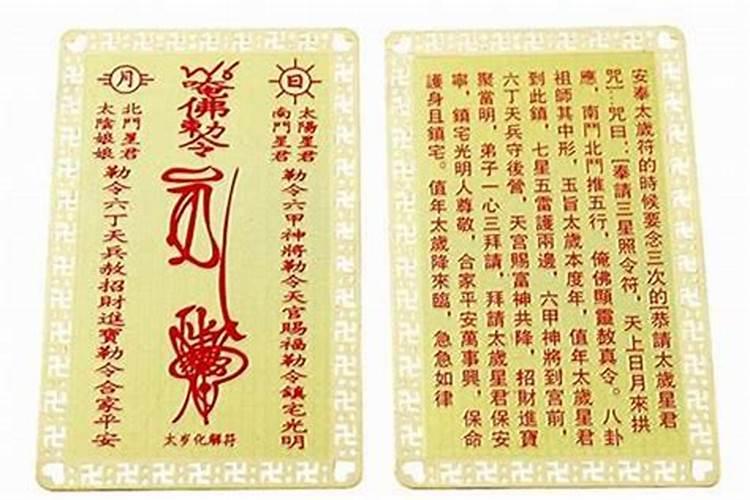 日
太陽星君
南鬥星君
勒令六甲神將勒令天官賜福勒令鎮宅光明
唵佛勅令
月
北鬥星君
太陰娘娘
勒令六丁天兵赦招財進寶勒令合家平安
太岁化解符
安奉太歲符的時候要念三次的[恭請太歲星君
咒]…咒曰:[奉請三星照令符,天上日月來拱
應,南鬥北鬥推五行,俺佛顯靈赦真令。八卦
祖師其中形,玉旨太歲本度年,值年太歲星君
到此鎮,七星五雷護兩邊,六甲神將到宮前,
六丁天兵守後營,天宮賜富神共降,招財進寶
聚當明,弟子一心三拜請,拜請太歲星君保安
寧,鎮宅光明人尊敬,合家平安萬事興,保命
護身且鎮宅。值年太歲降來臨,急急如律